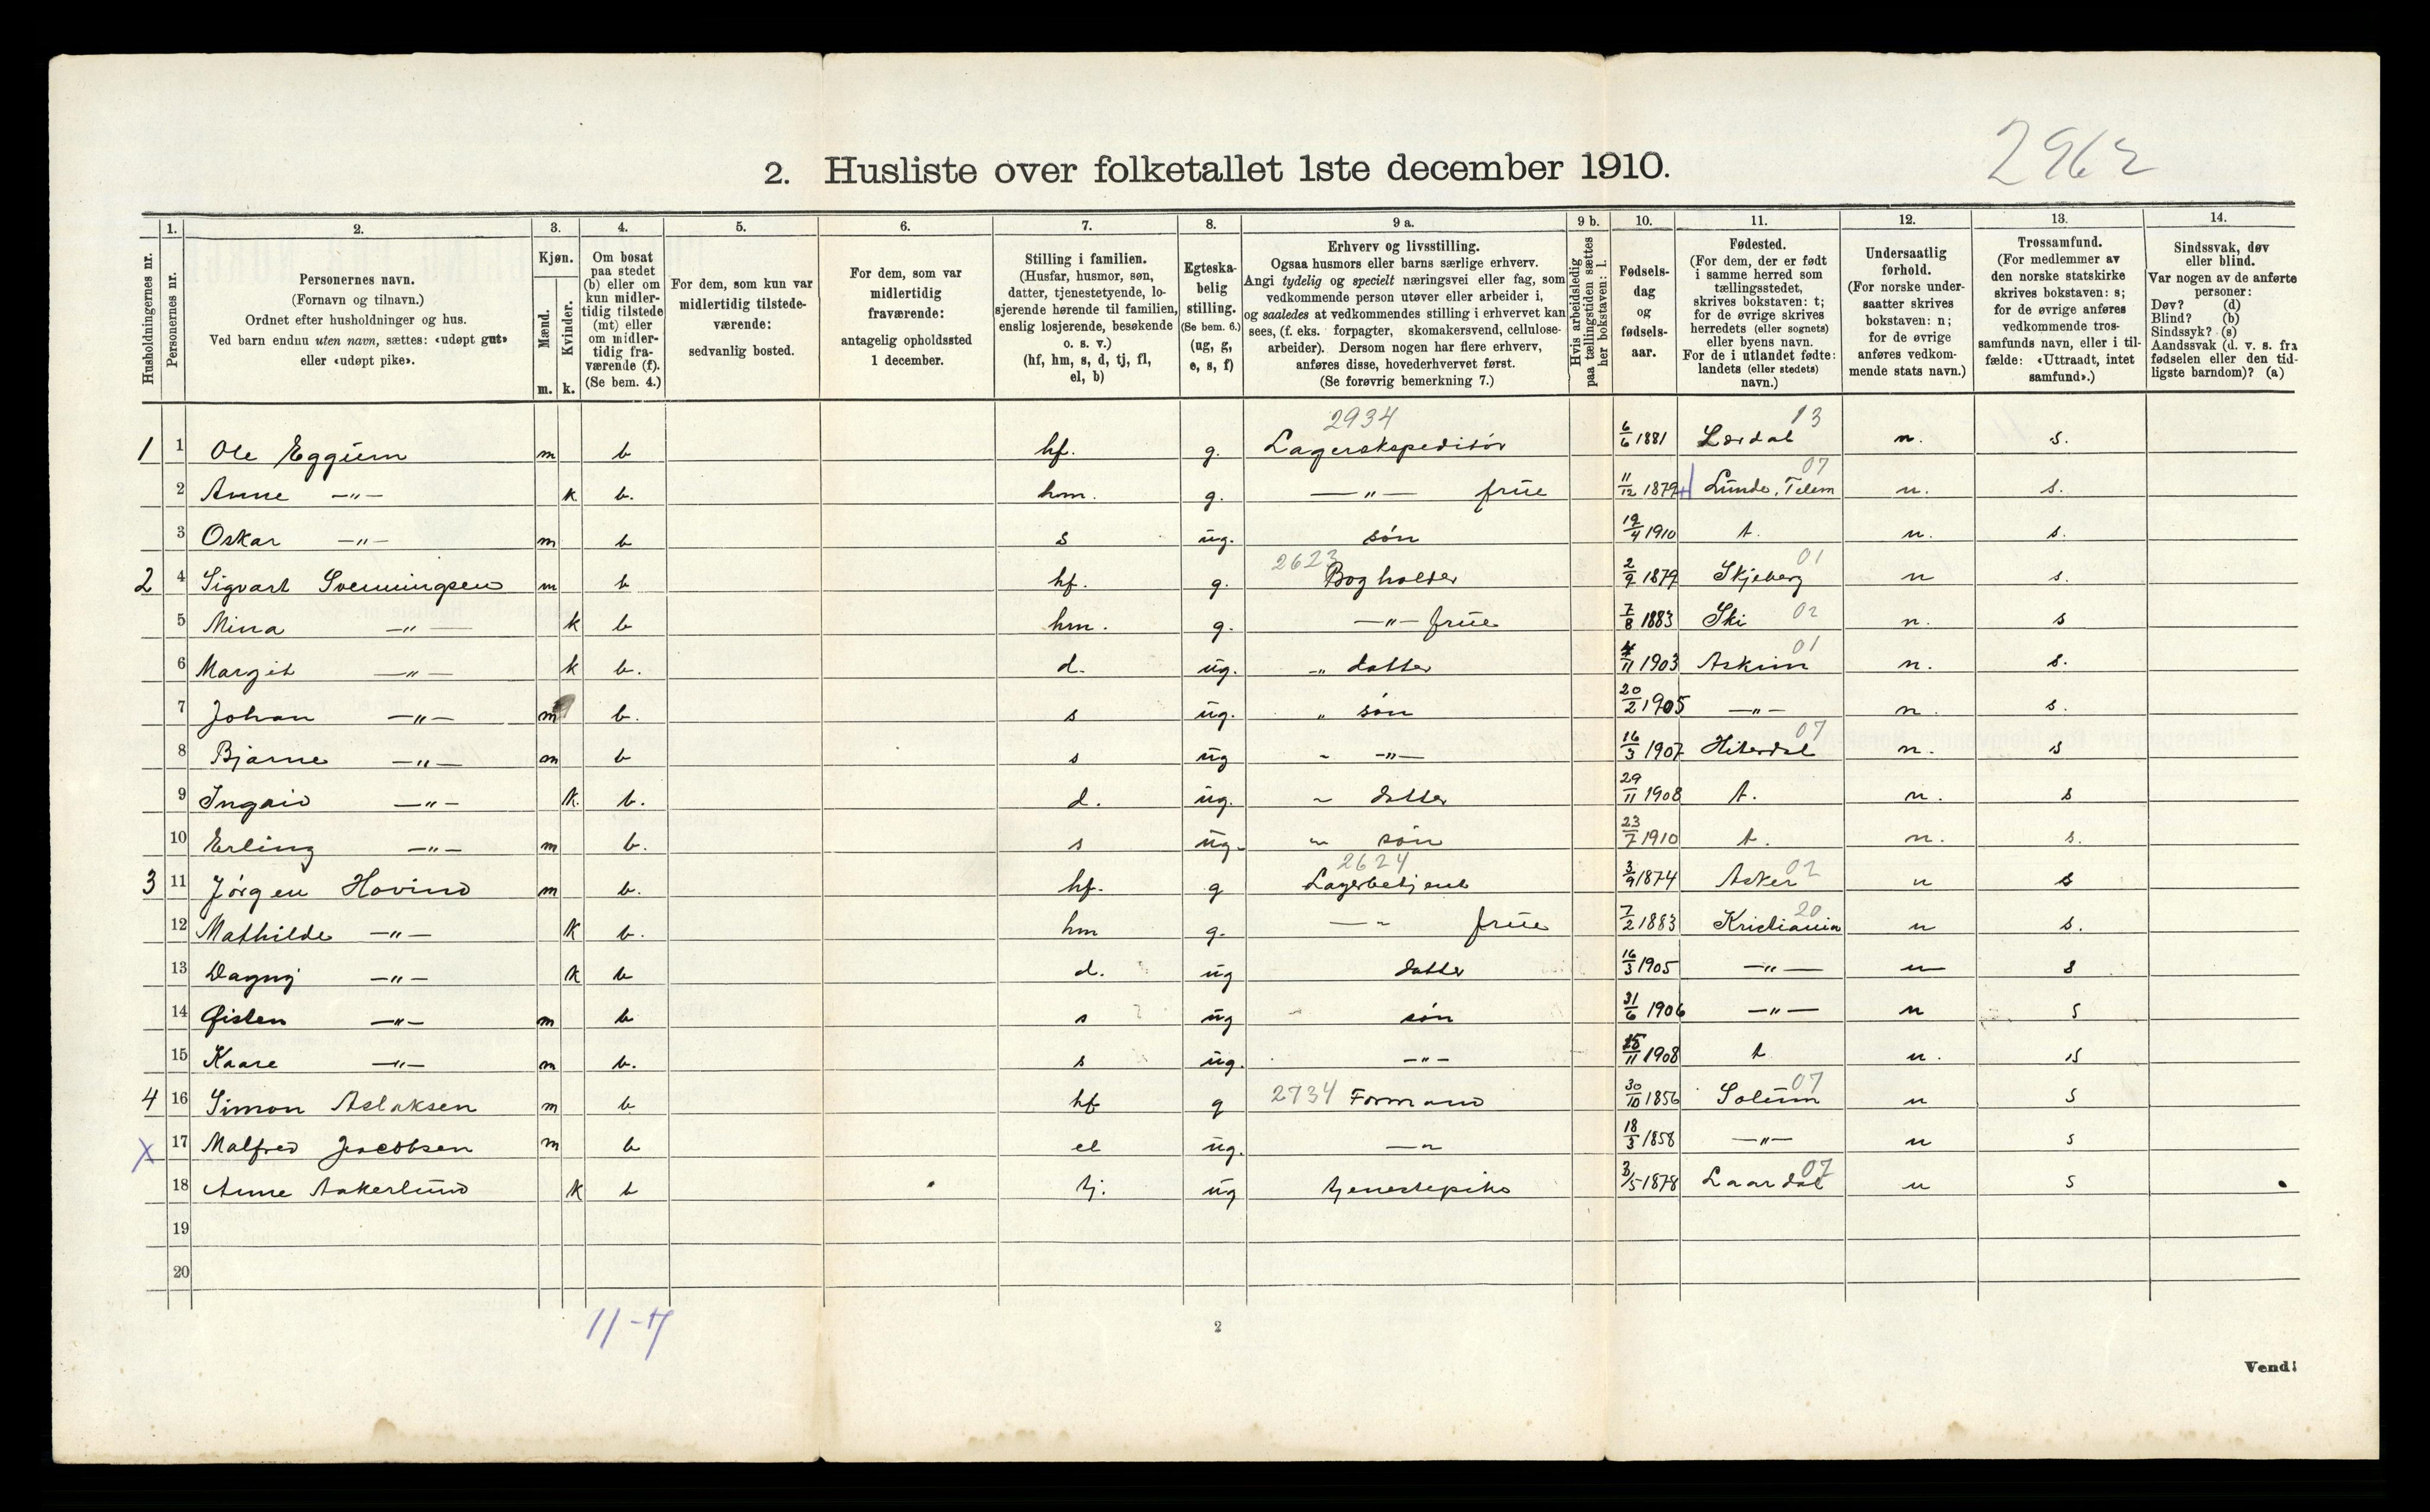 2962
2. Husliste over folketallet 1ste december 1910.
Husholdningernes nr.
1. Personernes nr.
2. Personernes navn. (Fornavn og tilnavn.) Ordnet efter husholdninger og hus. Ved barn endnu uten navn, sættes: «udøpt gut» eller «udøpt pike».
3. Kjøn. Mænd. m. Kvinder. k.
4. Om bosat paa stedet (b) eller om kun midlertidig tilstede (mt) eller om midlertidig fraværende (f). (Se bem. 4.)
5. For dem, som kun var midlertidig tilstedeværende: sedvanlig bosted.
6. For dem, som var midlertidig fraværende: antagelig opholdssted 1 december.
7. Stilling i familien. (Husfar, husmor, søn, datter, tjenestetyende, losjerende hørende til familien, enslig losjerende, besøkende o. s. v.) (hf, hm, s, d, tj, fl, el, b)
8. Egteskabelig stilling. (Se bem. 6.) (ug, g, e, s, f)
9 a. Erhverv og livsstilling. Ogsaa husmors eller barns særlige erhverv. Angi tydelig og specielt næringsvei eller fag, som vedkommende person utøver eller arbeider i, og saaledes at vedkommendes stilling i erhvervet kan sees, (f. eks. forpagter, skomakersvend, cellulosearbeider). Dersom nogen har flere erhverv, anføres disse, hovederhvervet først. (Se forøvrig bemerkning 7.)
9 b. Hvis arbeidsledig paa tællingstiden sættes her bokstaven: l.
10. Fødselsdag og fødselsaar.
11. Fødested. (For dem, der er født i samme herred som tællingsstedet, skrives bokstaven: t; for de øvrige skrives herredets (eller sognets) eller byens navn. For de i utlandet fødte: landets (eller stedets) navn.)
12. Undersaatlig forhold. (For norske undersaatter skrives bokstaven: n; for de øvrige anføres vedkommende stats navn.)
13. Trossamfund. (For medlemmer av den norske statskirke skrives bokstaven: s; for de øvrige anføres vedkommende trossamfunds navn, eller i tilfælde: «Uttraadt, intet samfund».)
14. Sindssvak, døv eller blind. Var nogen av de anførte personer: Døv? (d) Blind? (b) Sindssyk? (s) Aandssvak (d. v. s. fra fødselen eller den tidligste barndom)? (a)
1 1 Ole Eggum m b hf. g. 2934 Lagerekspeditör 6/6 1881 Lærdal 13 n. s.
2 Anne —"— k b. hm. g. —"— frue 11/12 1879 Lunde, Telem 07 n. s.
3 Oskar —"— m b s ug. søn 19/4 1910 t. n. s.
2 4 Sigvart Svenningsen m b hf. g. 2623 Bogholder 2/9 1879 Skjeberg 01 n s.
5 Mina —"— k b hm. g. —"— frue 7/8 1883 Ski 02 n. s
6 Margit —"— k b. d. ug. " datter /11 1903 Askim 01 n. s.
7 Johan —"— m b. s ug. " søn 20/2 1905 —"— n. s.
8 Bjarne —"— m b s ug " —"— 16/3 1907 Hiterdal 07 n. s
9 Ingrid —"— k. b. d. ug. " datter 29/11 1908 t. n. s
10 Erling —"— m b. s ug. " søn 23/7 1910 t. n. s.
3 11 Jörgen Hovind m b. hf. g 2624 Lagerbetjent 3/9 1874 Asker 02 n s
12 Mathilde —"— k b. hm g. —"— frue 7/2 1883 Kristiania 20 n s.
13 Dagny —"— k b d. ug datter 16/3 1905 —"— n s
14 Øisten —"— m b s ug søn 31/6 1906 —"— n s
15 Kaare —"— m b. s ug. —"— 15/11 1908 t n. s
4 16 Simon Aslaksen m b hf g 2734 Formand 30/10 1856 Solum 07 n s
X 17 Malfred Jacobsen m b el ug. —"— 18/3 1858 —"— n s
18 Anne Aakerlund k b tj. ug tjenestepike 3/5 1878 Laardal 07 n s
19
20
11-7
2
Vend!